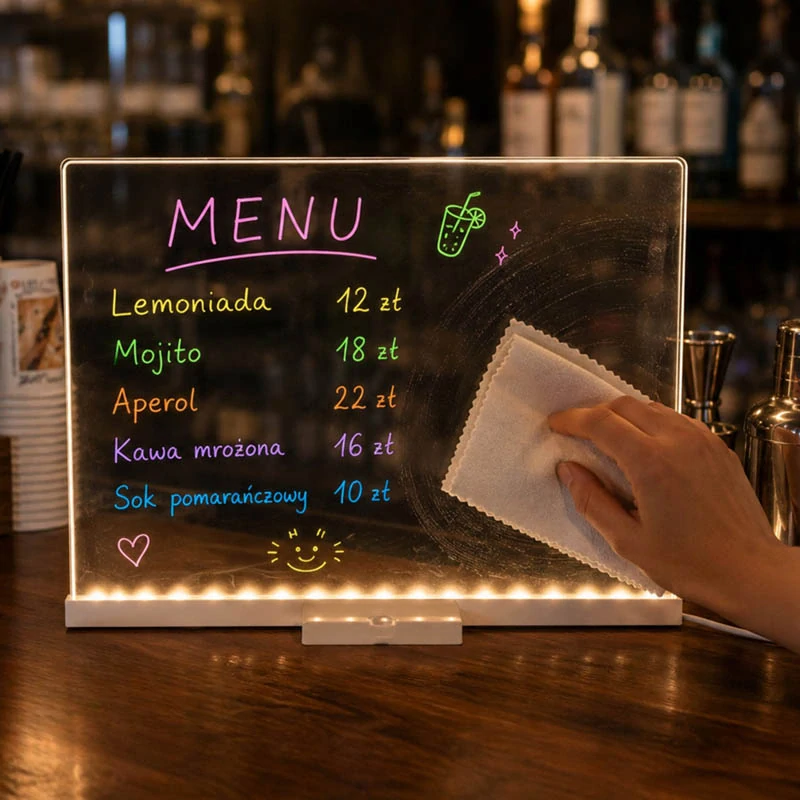 MENU
Lemoniada 12 zł
Mojito 18 zł
Aperol 22 zł
Kawa mrożona 16 zł
Sok pomarańczowy 10 zł